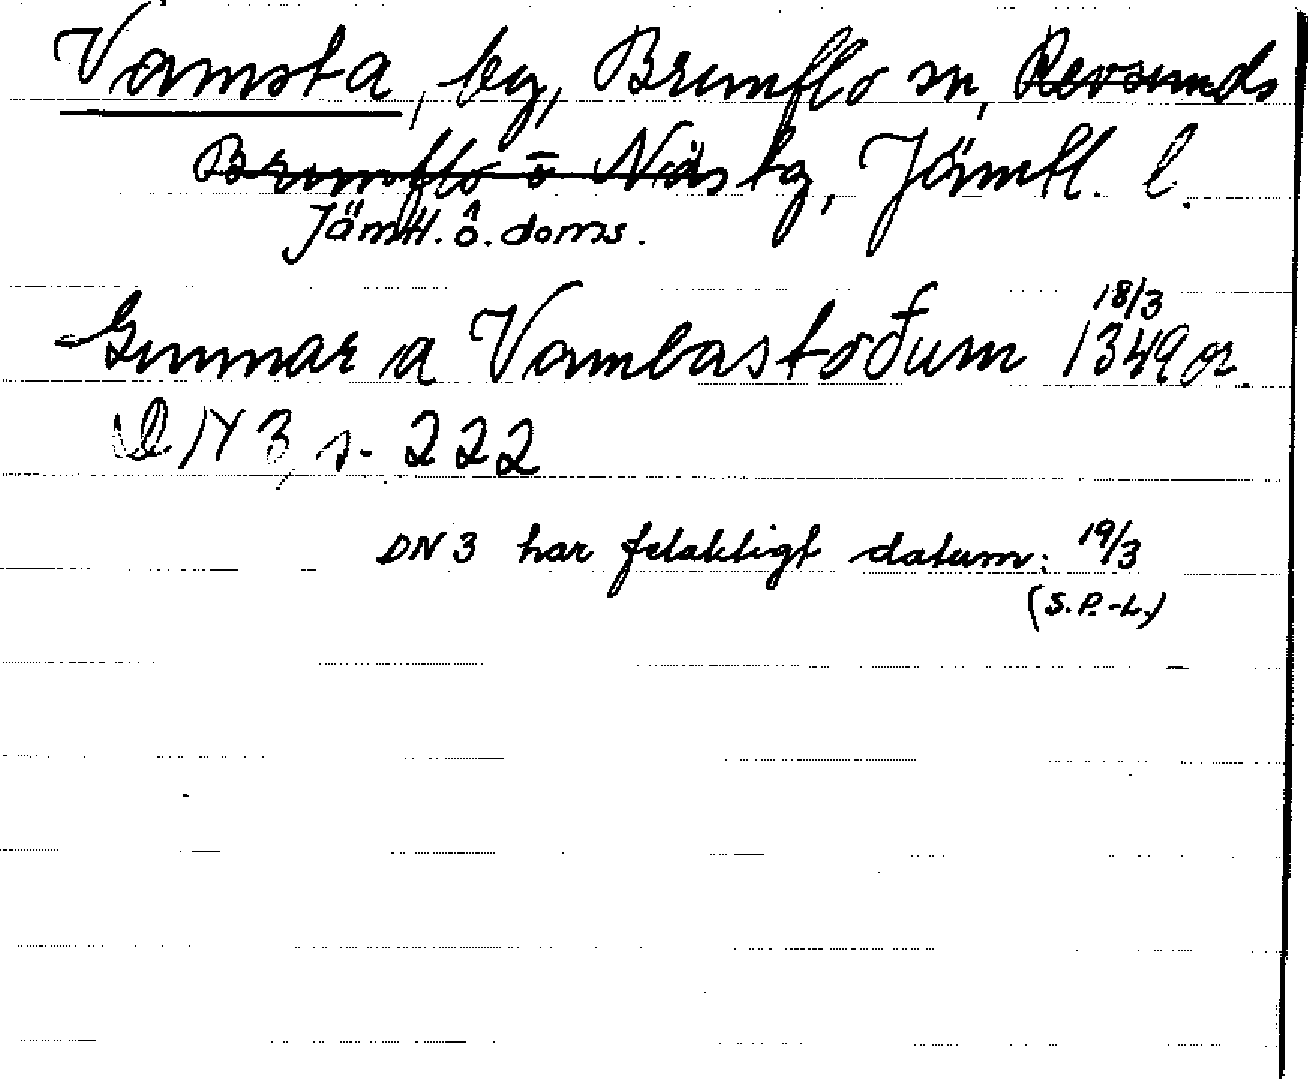 Vamsta, by, Brunflo sn, Revsunds
Brunflo o Näs tg, Jämtl. l.
Jämtl. ö. doms.
Gunnar a Vambastoðum 18/3 1349 or.
DN 3, s. 222
DN 3 har felaktigt datum: 19/3
(S.P.-L.)